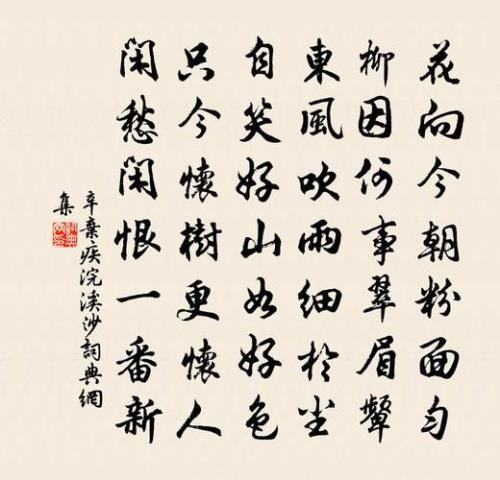 花向今朝粉面匀
柳因何事翠眉顰
東風吹雨細於塵
自笑好山如好色
只今懷樹更懷人
閑愁閑恨一番新
辛棄疾浣溪沙詞典網
集